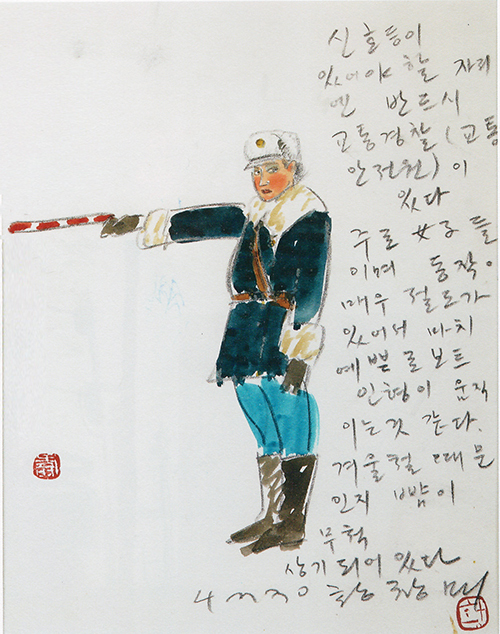 신호등이
있어야 할 자리
엔 반드시
교통경찰(교통
안전원)이
있다
주로 女子들
이며 동작이
매우 절도가
있어서 마치
예쁜 로보트
인형이 움직
이는것 같다.
겨울철 때문
인지 뺨이
무척
상기 되어 있다